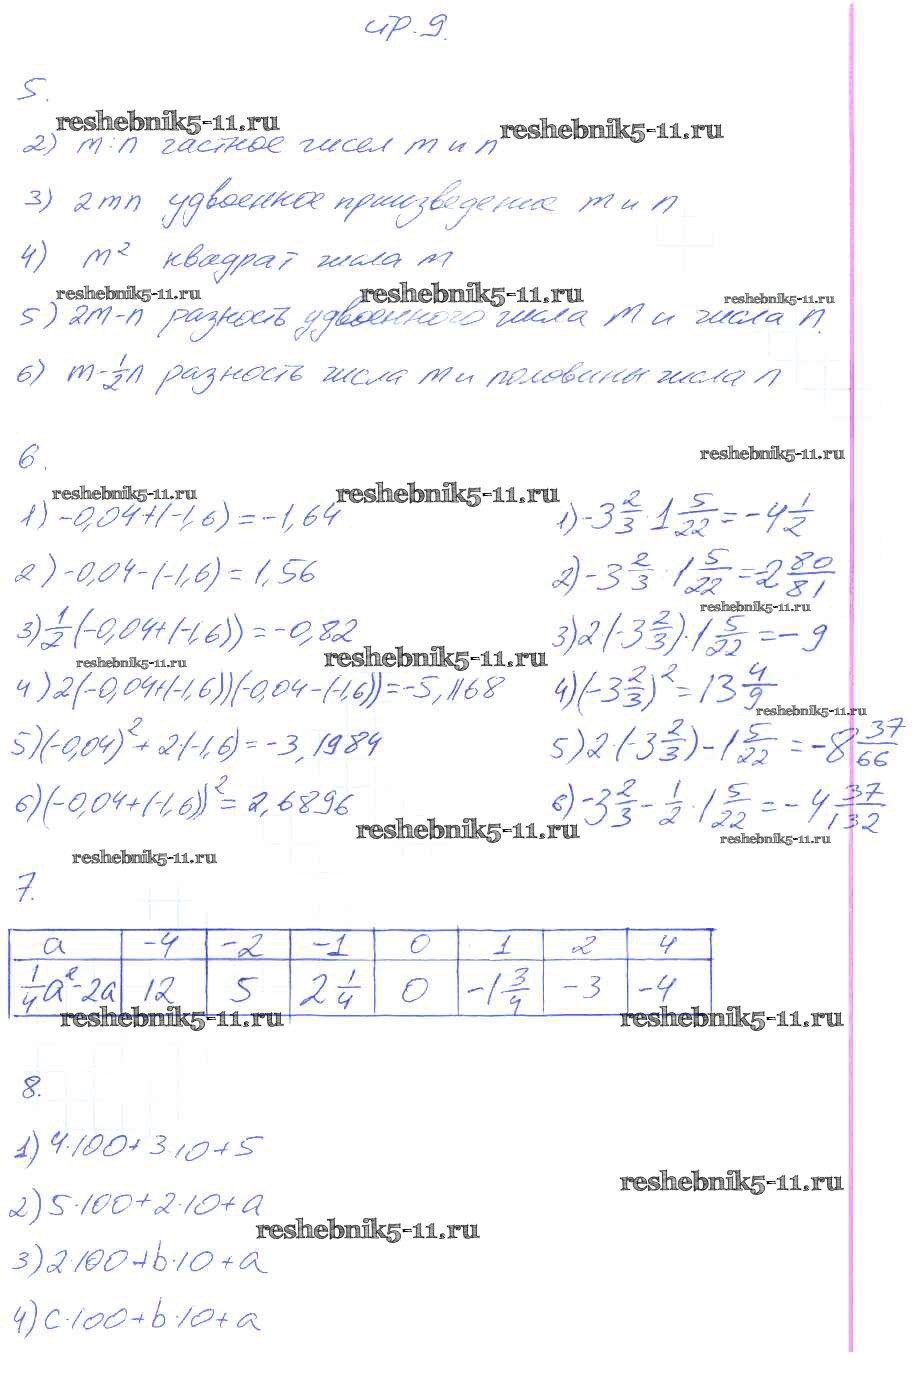 стр. 9.
5.
reshebnik5-11.ru
reshebnik5-11.ru
2) m:n частное чисел m и n
3) 2mn удвоенное произведение m и n
4) m² квадрат числа m
reshebnik5-11.ru
reshebnik5-11.ru
reshebnik5-11.ru
5) 2m-n разность удвоенного числа m и числа n.
6) m-1/2n разность числа m и половины числа n
6.
reshebnik5-11.ru
reshebnik5-11.ru
reshebnik5-11.ru
1) -0,04+(-1,6)=-1,64
1) -3 2/3 · 1 5/22 = -4 1/2
2) -0,04-(-1,6)=1,56
2) -3 2/3 : 1 5/22 = -2 80/81
reshebnik5-11.ru
3) 1/2(-0,04+(-1,6))=-0,82
3) 2·(-3 2/3)·1 5/22 = -9
reshebnik5-11.ru
reshebnik5-11.ru
4) 2(-0,04+(-1,6))(-0,04-(-1,6))=-5,1168
4) (-3 2/3)² = 13 4/9
reshebnik5-11.ru
5) (-0,04)²+2·(-1,6)=-3,1984
5) 2·(-3 2/3)-1 5/22 = -8 37/66
6) (-0,04+(-1,6))²=2,6896
6) -3 2/3 - 1/2 · 1 5/22 = -4 37/132
reshebnik5-11.ru
reshebnik5-11.ru
reshebnik5-11.ru
7.
a -4 -2 -1 0 1 2 4
1/4a²-2a 12 5 2 1/4 0 -1 3/4 -3 -4
reshebnik5-11.ru
reshebnik5-11.ru
8.
1) 4·100+3·10+5
reshebnik5-11.ru
2) 5·100+2·10+a
reshebnik5-11.ru
3) 2·100+b·10+a
4) c·100+b·10+a